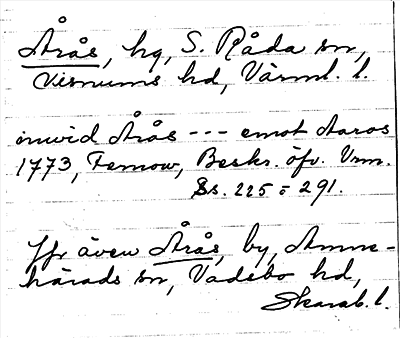 Årås, hg, S. Råda sn,
Visnums hd, Värml. l.
invid Årås --- emot Aaros
1773, Fernow, Beskr. öfv. Vrm.
Ss. 225 = 291.
Jfr även Årås, by, Amne-
härads sn, Vadsbo hd,
Skarab. l.